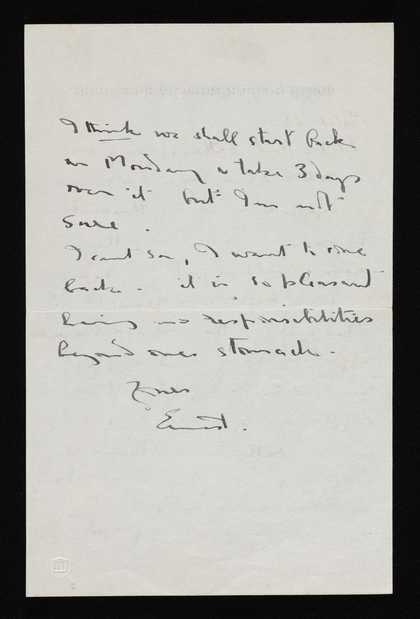 I think we shall start back
on Monday & take 3 days
over it but I'm not
sure.
I cant say, I want to come
back. it is so pleasant
having no responsibilities
beyond ones stomach.
Yours
Ernest.